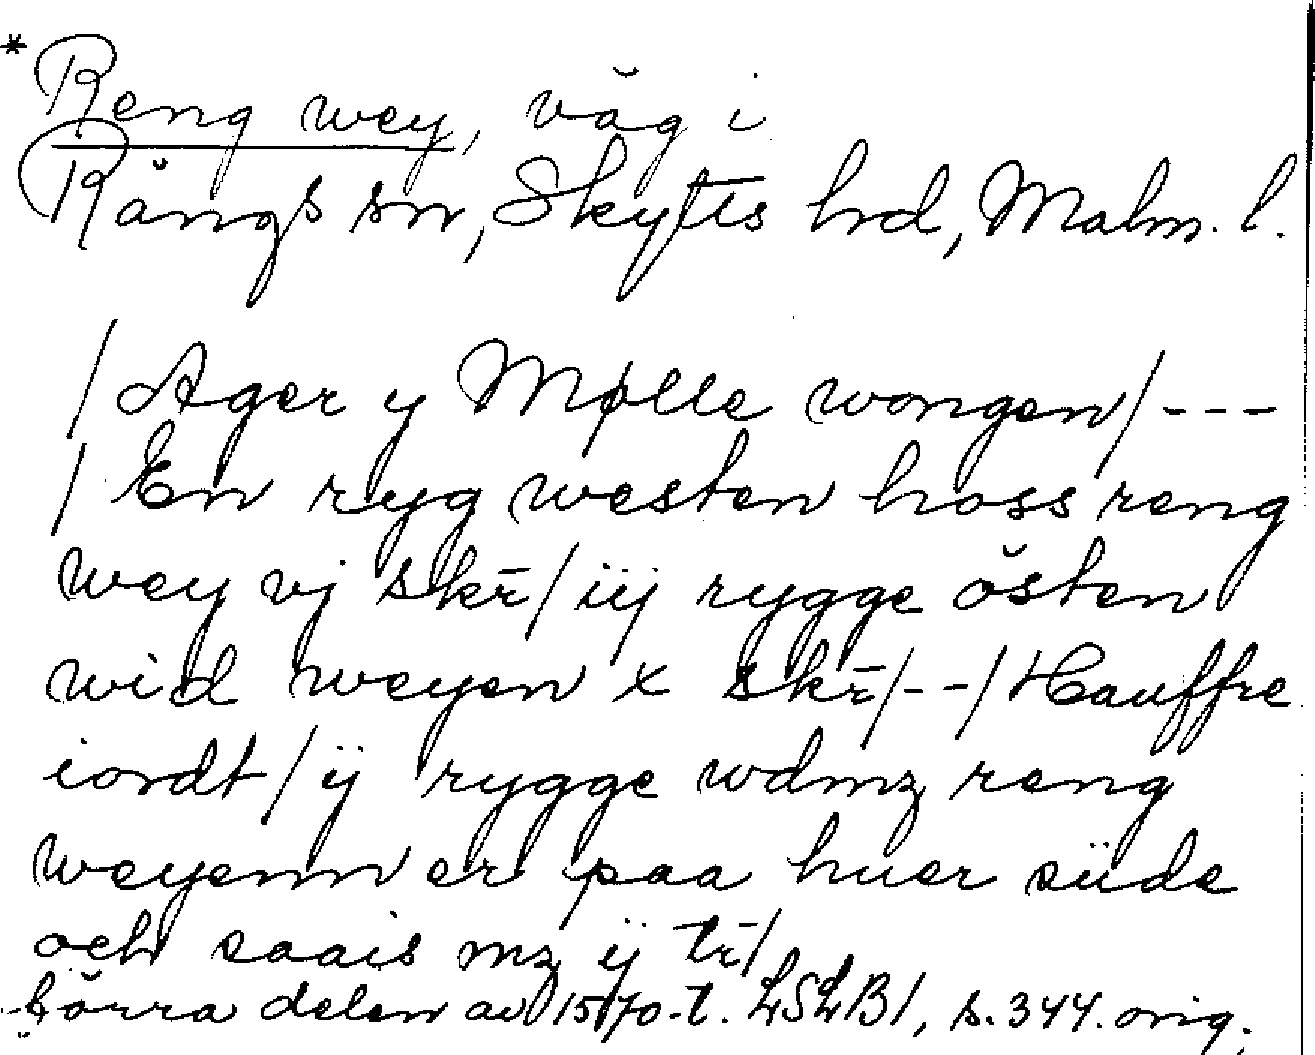 * Reng wey, väg i
Rängs sn, Skytts hrd, Malm. l.
/ Ager y Mølle wongen / - - -
/ En ryg westen hoss reng
wey vj skr̄ / iij rygge östen
wid weyen x skr̄ / - - / Hauffre
iordt / ij rygge wdmz reng
weyenn er paa huer siide
och saais mz ij tr̄ /
förra delen av 1570-t. LSLB1, s. 344. orig.